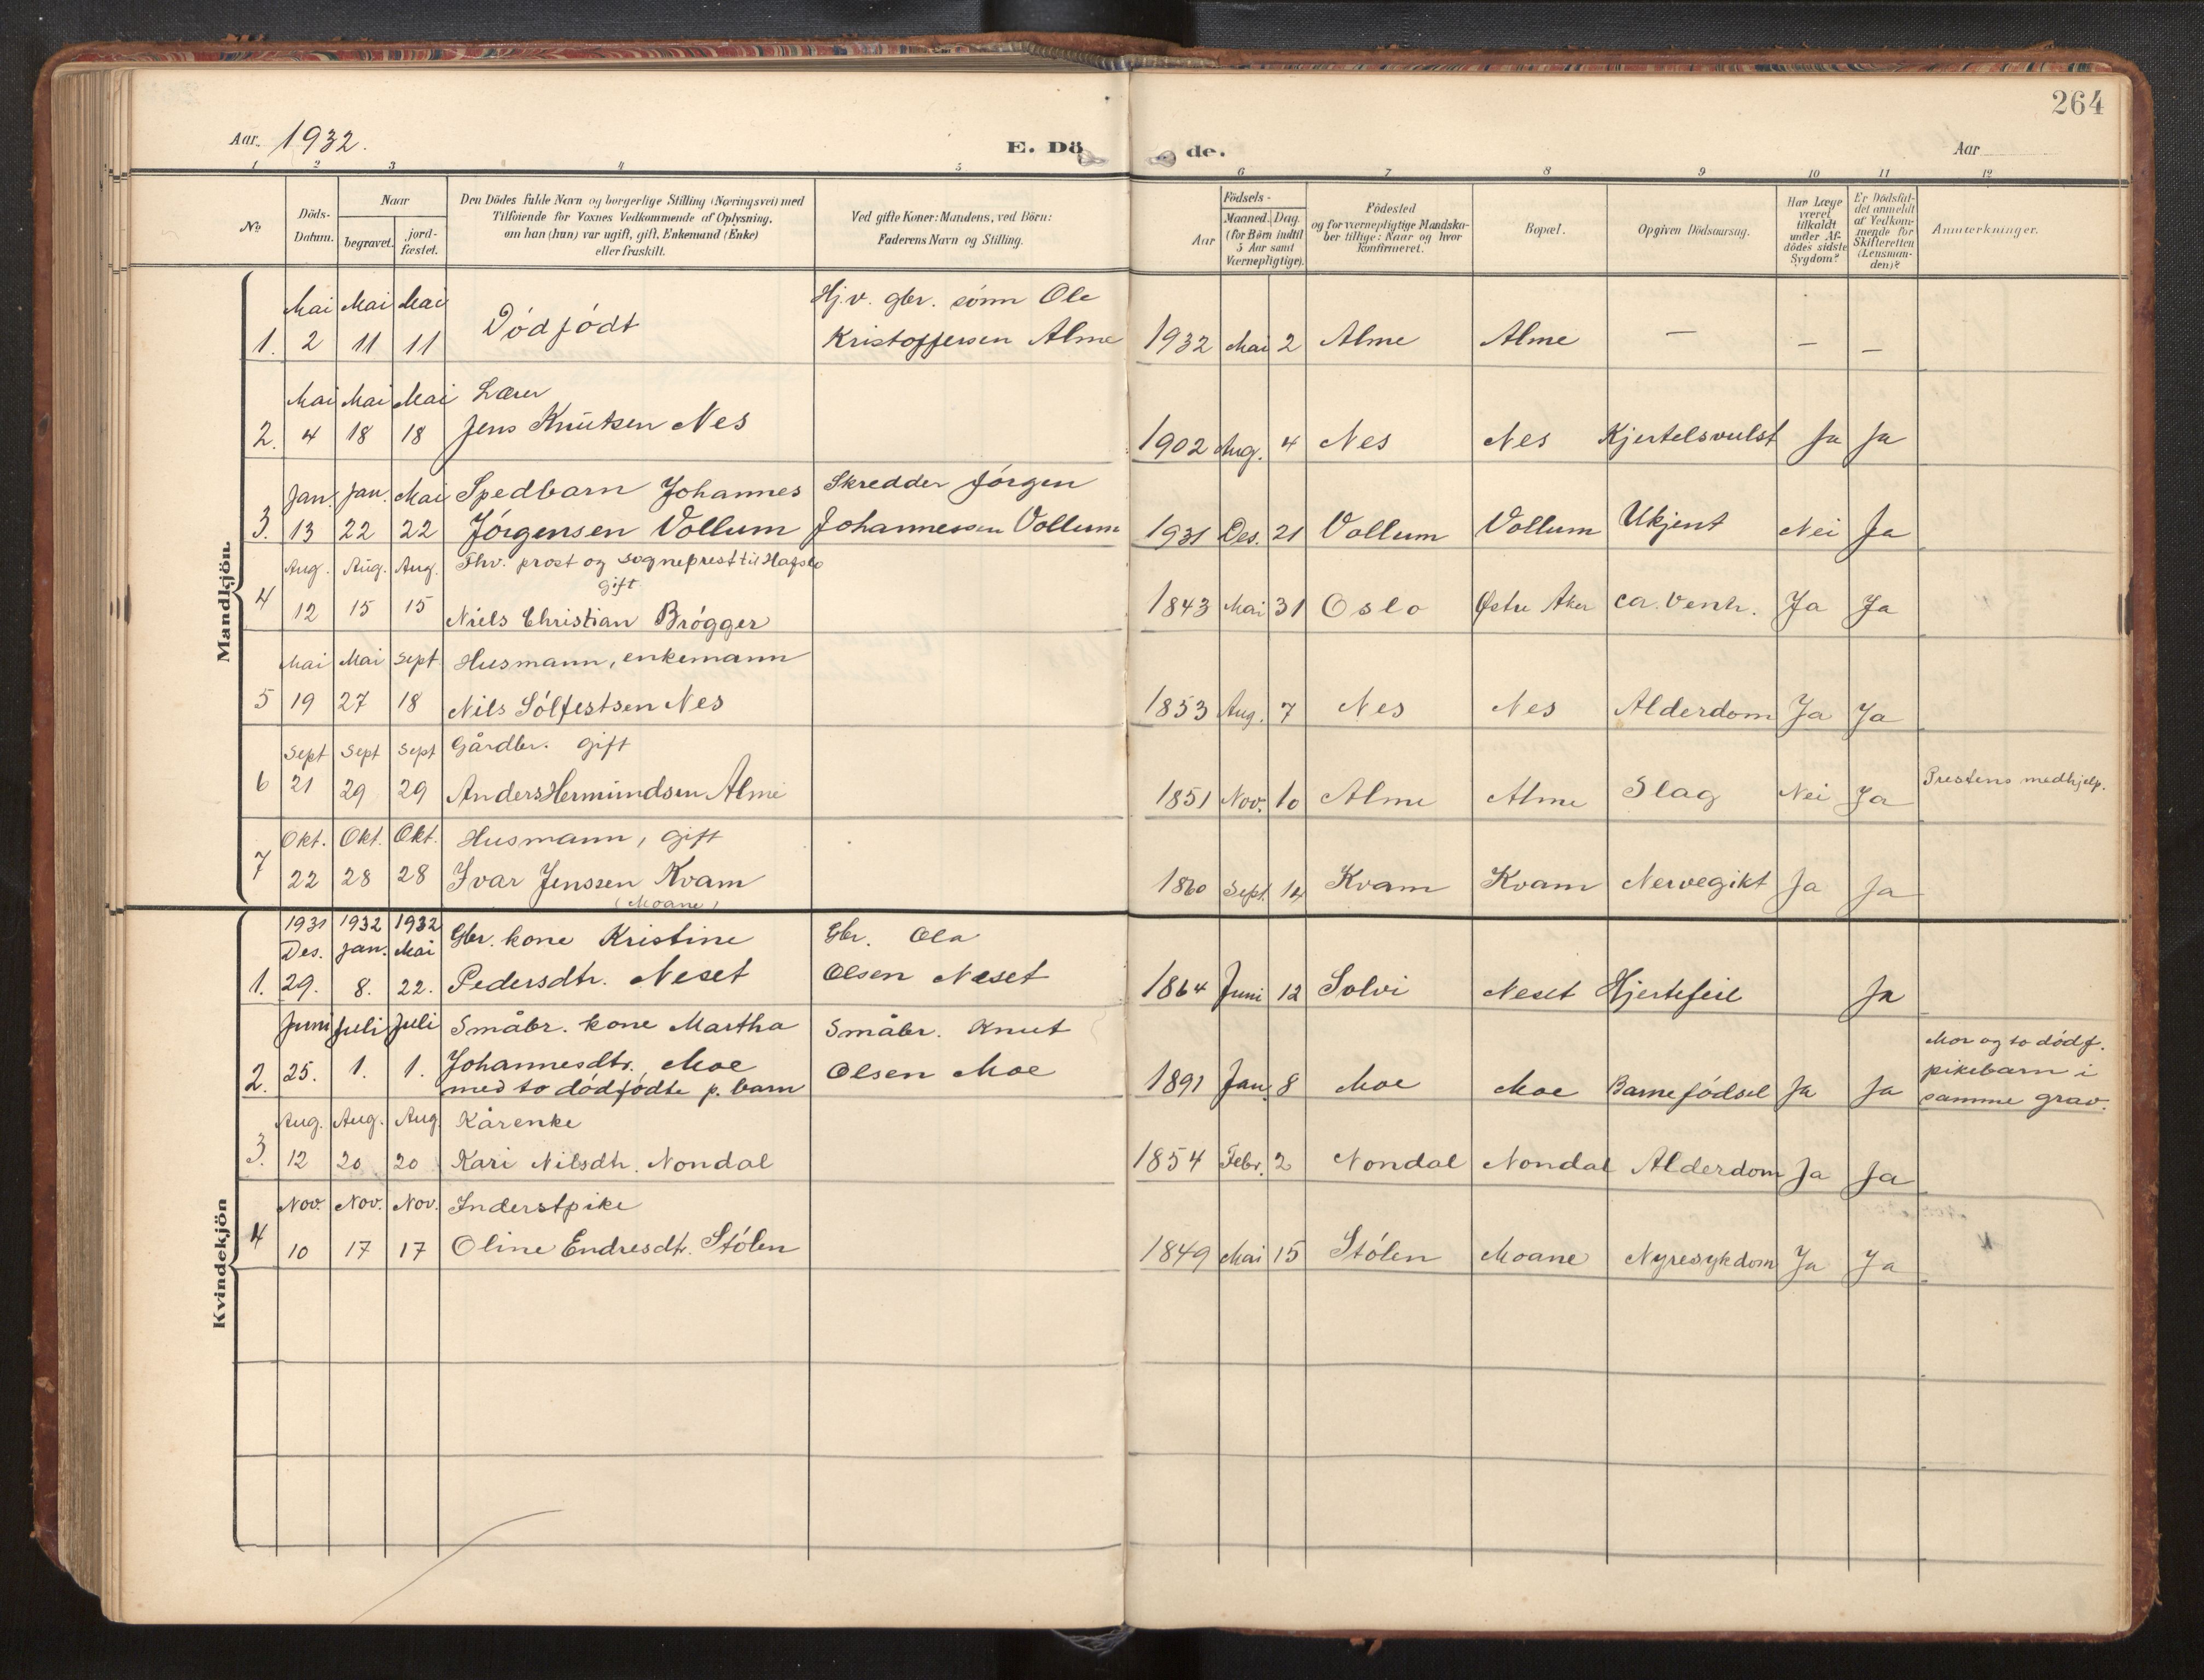 264
Aar. 1932.
E. Dö de.
Aar
1 2 3 4 5 6 7 8 9 10 11 12
No
Döds-
Datum.
Naar
begravet.
jord-
fæstet.
Den Dödes fulde Navn og borgerlige Stilling (Næringsvei) med
Tilföiende for Voxnes Vedkommende af Oplysning,
om han (hun) var ugift, gift, Enkemand (Enke)
eller fraskilt.
Ved gifte Koner: Mandens, ved Börn:
Faderens Navn og Stilling.
Aar
Födsels-
Maaned. Dag.
(for Börn indtil
5 Aar samt
Værnepligtige).
Födested
og for værnepligtige Mandska-
ber tillige: Naar og hvor
konfirmeret.
Bopæl.
Opgiven Dödsaarsag.
Har Læge
været
tilkaldt
under Af-
dödes sidste
Sygdom?
Er Dödsfal-
det anmeldt
af Vedkom-
mende for
Skifteretten
(Lensman-
den)?
Anmærkninger.
Mandkjön.
Mai Mai Mai Hj.v. gbr. sönn Ole
1. 2 11 11 Dödfödt Kristoffersen Alme 1932 Mai 2 Alme Alme — — —
Mai Mai Mai Lærer
2. 4 18 18 Jens Knutsen Nes 1902 Aug. 4 Nes Nes Kjertelsvulst Ja Ja
Jan. Jan. Mai Spedbarn Johannes Skredder Jörgen
3. 13 22 22 Jörgensen Vollum Johannessen Vollum 1931 Des. 21 Vollum Vollum Ukjent Nei Ja
Aug. Aug. Aug. Fhv. prost og sogneprest til Hafslo
gift
4 12 15 15 Niels Christian Brögger 1843 Mai 31 Oslo Østre Aker ca. ventr. Ja Ja
Mai Mai Sept Husmann, enkemann
5 19 27 18 Nils Sölfestsen Nes 1853 Aug. 7 Nes Nes Alderdom Ja Ja
Sept Sept Sept Gårdbr. gift
6 21 29 29 Anders Hermundsen Alme 1851 Nov. 10 Alme Alme Slag Nei Ja Prestens medhjelp.
Okt. Okt. Okt. Husmann, gift
7 22 28 28 Ivar Jenssen Kvam 1860 Sept. 14 Kvam Kvam Nervegikt Ja Ja
(Moane)
Kvindekjön
1931 1932 1932
Des. Jan. Mai Gbr. kone Kristine Gbr. Ola
1. 29. 8. 22. Pedersdtr. Neset Olsen Neset 1864 Juni 12 Solvi Neset Hjertefeil Ja
Juni Juli Juli Småbr. kone Martha Småbr. Knut
2. 25. 1. 1. Johannesdtr. Moe Olsen Moe 1891 Jan. 8 Moe Moe Barnefödsel Ja Ja
med to dödfödte p. barn
Mor og to dödf.
pikebarn i
samme grav.
Aug. Aug. Aug Kårenke
3. 12 20 20 Kari Nilsdtr. Nondal 1854 Febr. 2 Nondal Nondal Alderdom Ja Ja
Nov. Nov. Nov. Inderstpike
4 10 17 17 Oline Endresdtr. Stölen 1849 Mai 15 Stölen Moane Nyresykdom Ja Ja